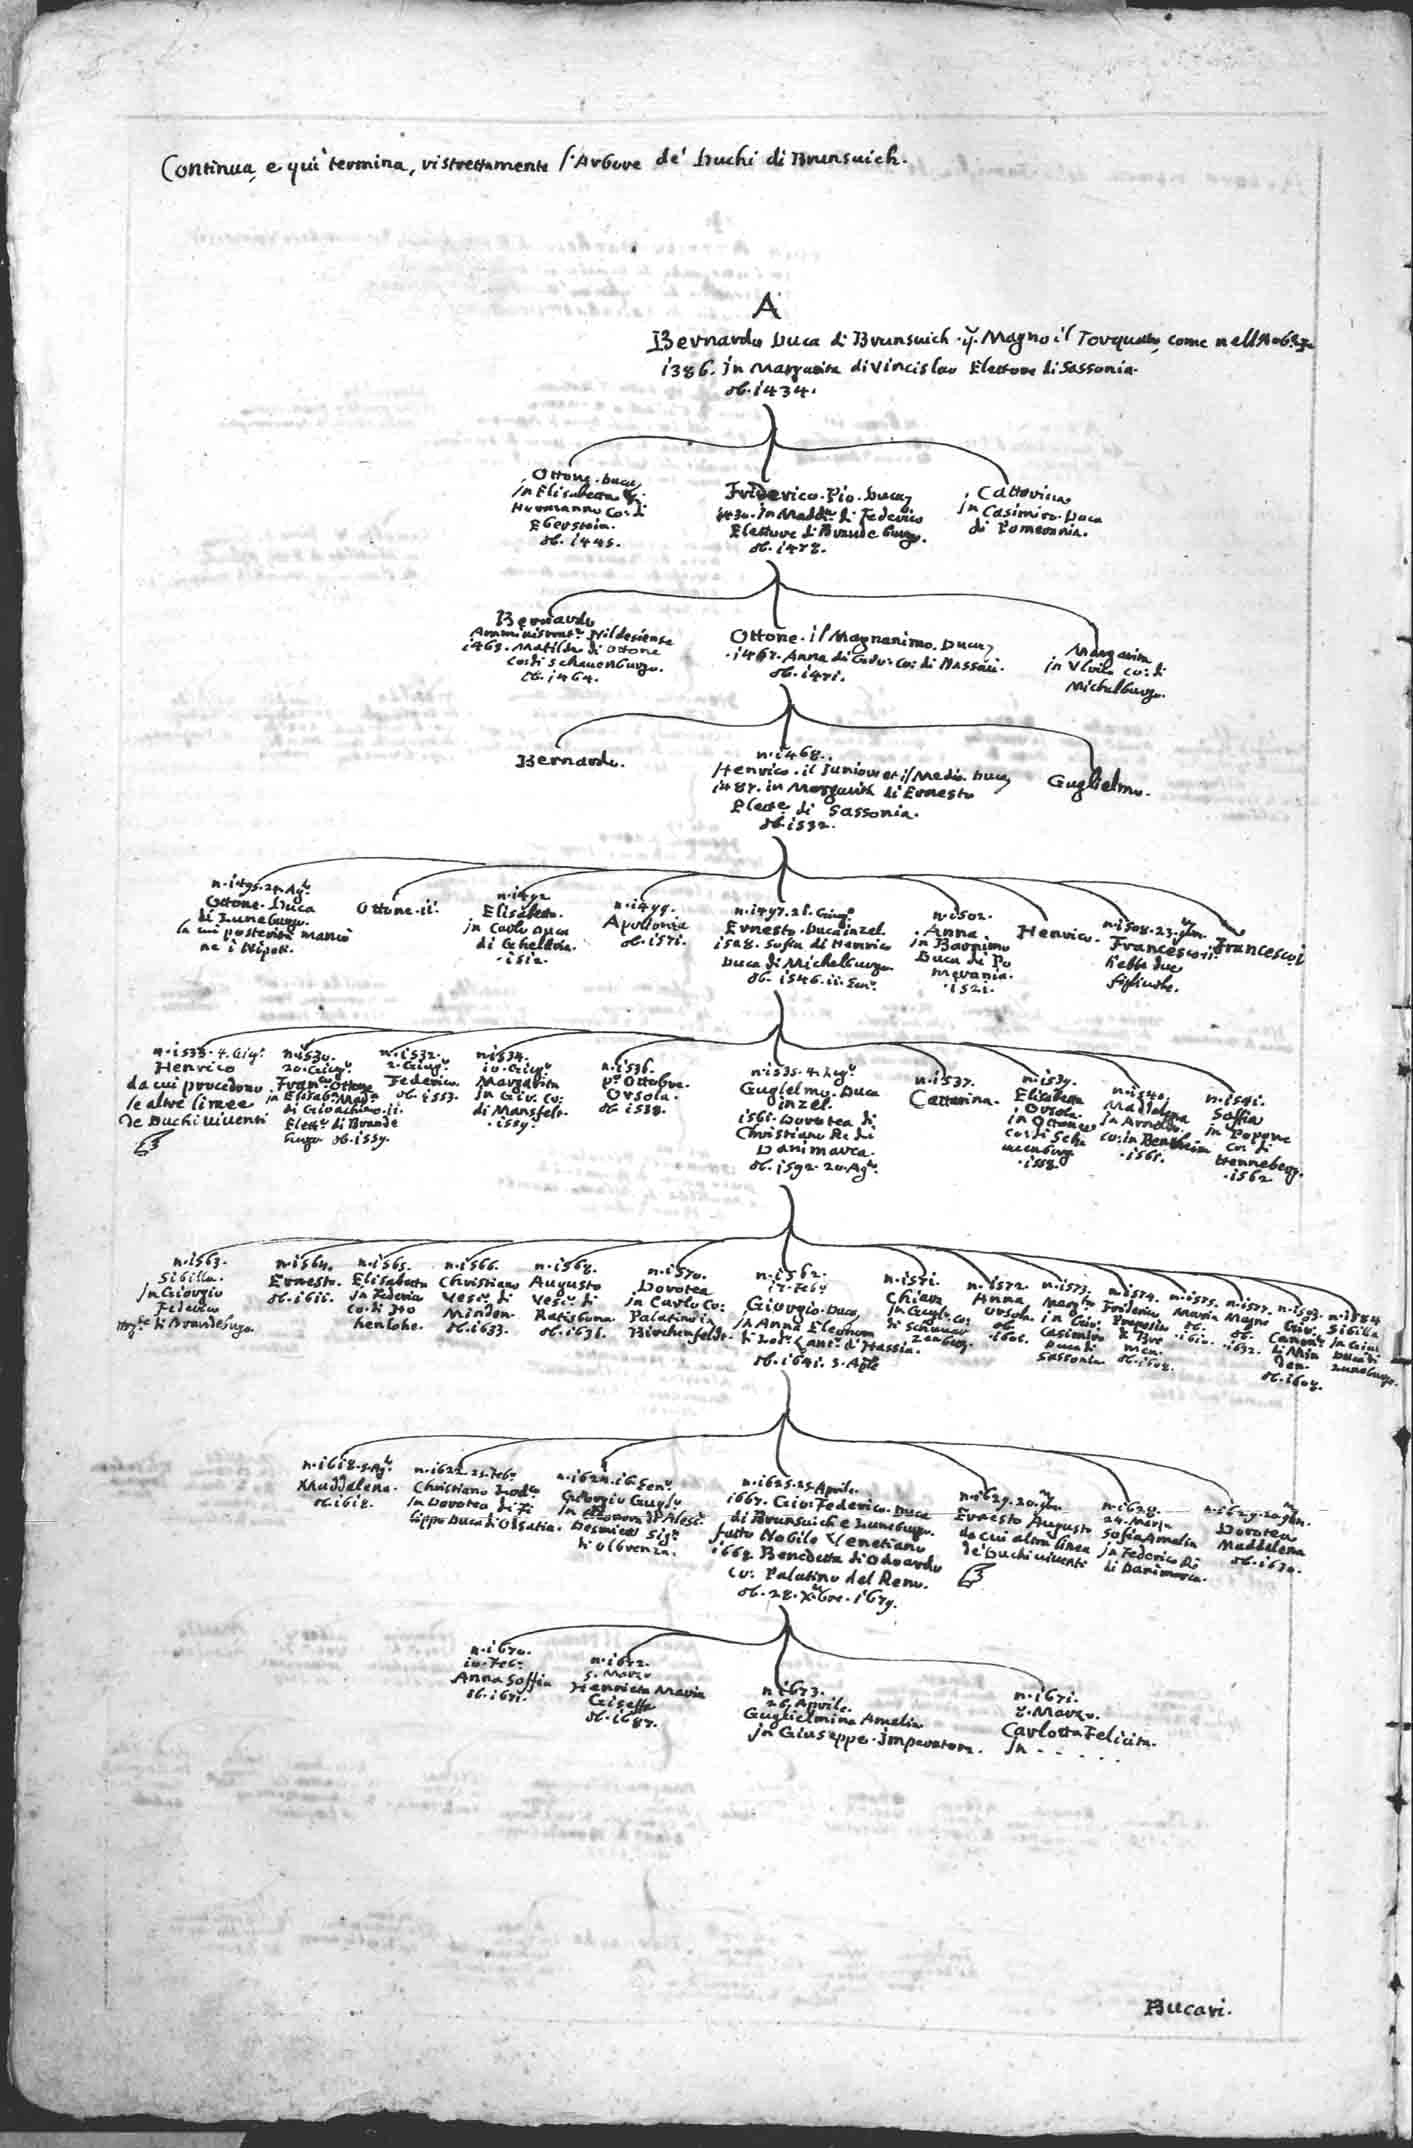 Continua, e qui termina, ristrettamente l'Arbore de' Duchi di Brunsuich.
A
Bernardo Duca di Brunsuich q. Magno il Torquato, come nell'
1386. in Margarita di Vincislao Elettore di Sassonia.
ob. 1434.
Ottone. Duca,
in Elisabetta di
Hermanno Co: di
Eberstein.
ob. 1445.
Friderico. Pio. Duca,
1430. in Madd.a di Federico
Elettore di Brandeburgo.
ob. 1478.
Cattarina
in Casimiro Duca
di Pomerania.
Bernardo
Amministrat.e Hildesiense
1463. Matilda di Ottone
Co: di Schauenburgo.
ob. 1464.
Ottone. il Magnanimo. Duca,
1467. Anna di Co: di Nassau.
ob. 1471.
Margarita
in Co: di
Michelburgo.
Bernardo.
n. 1468.
Henrico. il Juniore et il Medio. Duca,
1487. in Margarita di Ernesto
Elett.e di Sassonia.
ob. 1532.
Guglielmo.
n. 1495. 24. Ag.to
Ottone. Duca
di Luneburgo.
la cui posterità mancò
ne i Nipoti.
Ottone. ii.
n. 1492
Elisabetta.
in Carlo Duca
di Gheldria.
1512.
n. 1499.
Apollonia
ob. 1571.
n. 1497. 26. Giug.o
Ernesto. Duca in Zel.
1528. Sofia di Henrico
Duca di Michelburgo.
ob. 1546. 11. Gen.o
n. 1502.
Anna.
in Barnimo
Duca di Po
merania.
1521.
Henrico.
n. 1508. 23.
Francesco ii.
hebbe due
figliuole.
Francesco. i
n. 1533. 4. Giug.o
Henrico
da cui procedono
le altre linee
de Duchi viventi
n. 1530.
20. Giug.o
Fran.co Ottone
in Elisab.a Mad.a
di Gioachino. ii.
Elett.e di Brande
burgo ob. 1559.
n. 1532.
2. Giug.o
Federico.
ob. 1553.
n. 1534.
10. Giug.o
Margarita
in Gio. Co:
di Mansfelt.
1559.
n. 1536.
p.o Ottobre.
Orsola.
ob. 1538.
n. 1535. 4. Lug.o
Guglielmo. Duca
in Zel.
1561. Dorotea di
Christiano Re di
Danimarca.
ob. 1592. 20. Ag.to
n. 1537.
Cattarina.
n. 1539.
Elisabetta
Orsola.
in Ottone
Co: di Scha
uenburg
1558.
n. 1540.
Maddalena
in Arnoldo.
Co: in Bentheim
1561.
n. 1541.
Soffia
in Popone
Co: di
Henneberg.
1562
n. 1563.
Sibilla.
in Giorgio
Federico
di Brandeburgo.
n. 1564.
Ernesto.
ob. 1611.
n. 1565.
Elisabetta
in Federico
Co: di Ho
henlohe.
n. 1566.
Christiano
Vesc.o di
Minden.
ob. 1633.
n. 1568.
Augusto
Vesc.o di
Ratisbona
ob. 1636.
n. 1570.
Dorotea
in Carlo Co:
Palatino in
Birchenfeldt.
n. 1582.
17. Feb.o
Giorgio. Duca,
in Anna Eleonora
di Lod.o Lant.o d'Hassia.
ob. 1641. 2. Aple
n. 1571.
Chiara
in Gugl.o Co:
n. 1572.
Anna
Orsola.
ob.
1601.
n. 1573.
Marg.ta
in Gio:
Casimiro
Duca di
Sassonia
n. 1574.
Friderico
Preposito
di Bre
men.
n. 1575.
Maria
ob.
1610.
n. 1577.
Magno
ob.
1632.
n. 1583.
Giov.
di Min
den.
n. 1584
Sibilla
in Giul
Duca di
Luneburgo.
n. 1618. 9. Ag.to
Maddalena.
ob. 1618.
n. 1622. 25. Feb.o
Christiano Lod.co
in Dorotea di Fi
lippo Duca di Olsatia.
n. 1624. 16. Gen.o
Giorgio Gugl.o
in Eleonora di Aless.
Desmiers Sig.r
di Olbreuza.
n. 1625. 25. Aprile.
1667. Gio: Federico. Duca
di Brunsuich e Luneburgo.
fatto Nobile Venetiano
1668. Benedetta di Odoardo
Co: Palatino del Reno.
ob. 28. Xbre. 1679.
n. 1629. 20.
Ernesto Augusto
da cui altra linea
de' Duchi viventi
n. 1628.
24. Marzo
Sofia Amelia
in Federico Re
di Danimarca.
n. 1629. 20.
Dorotea
Maddalena
ob. 1630.
n. 1670.
10. Feb.o
Anna Soffia
ob. 1671.
n. 1672.
9. Marzo
Henrietta Maria
Giseffa
ob. 1687.
n. 1673.
26. Aprile.
Guglielmina Amelia
in Giuseppe. Imperatore.
n. 1671.
8. Marzo.
Carlotta Felicita.
in . . . . .
Bucari.